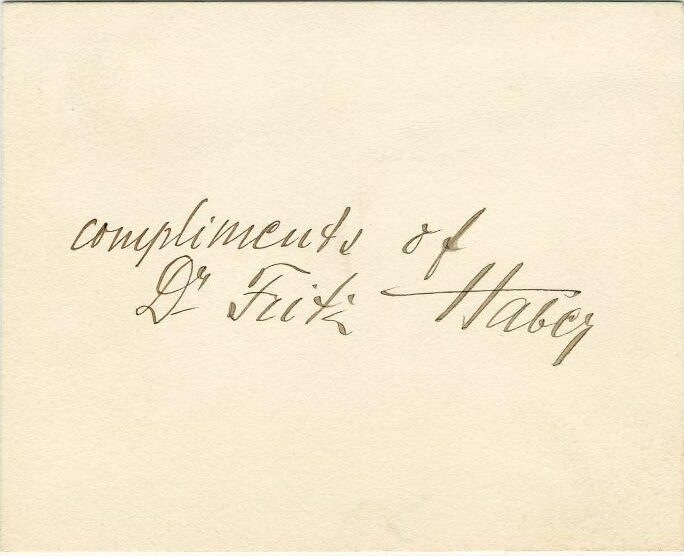 compliments of
Dr Fritz Haber